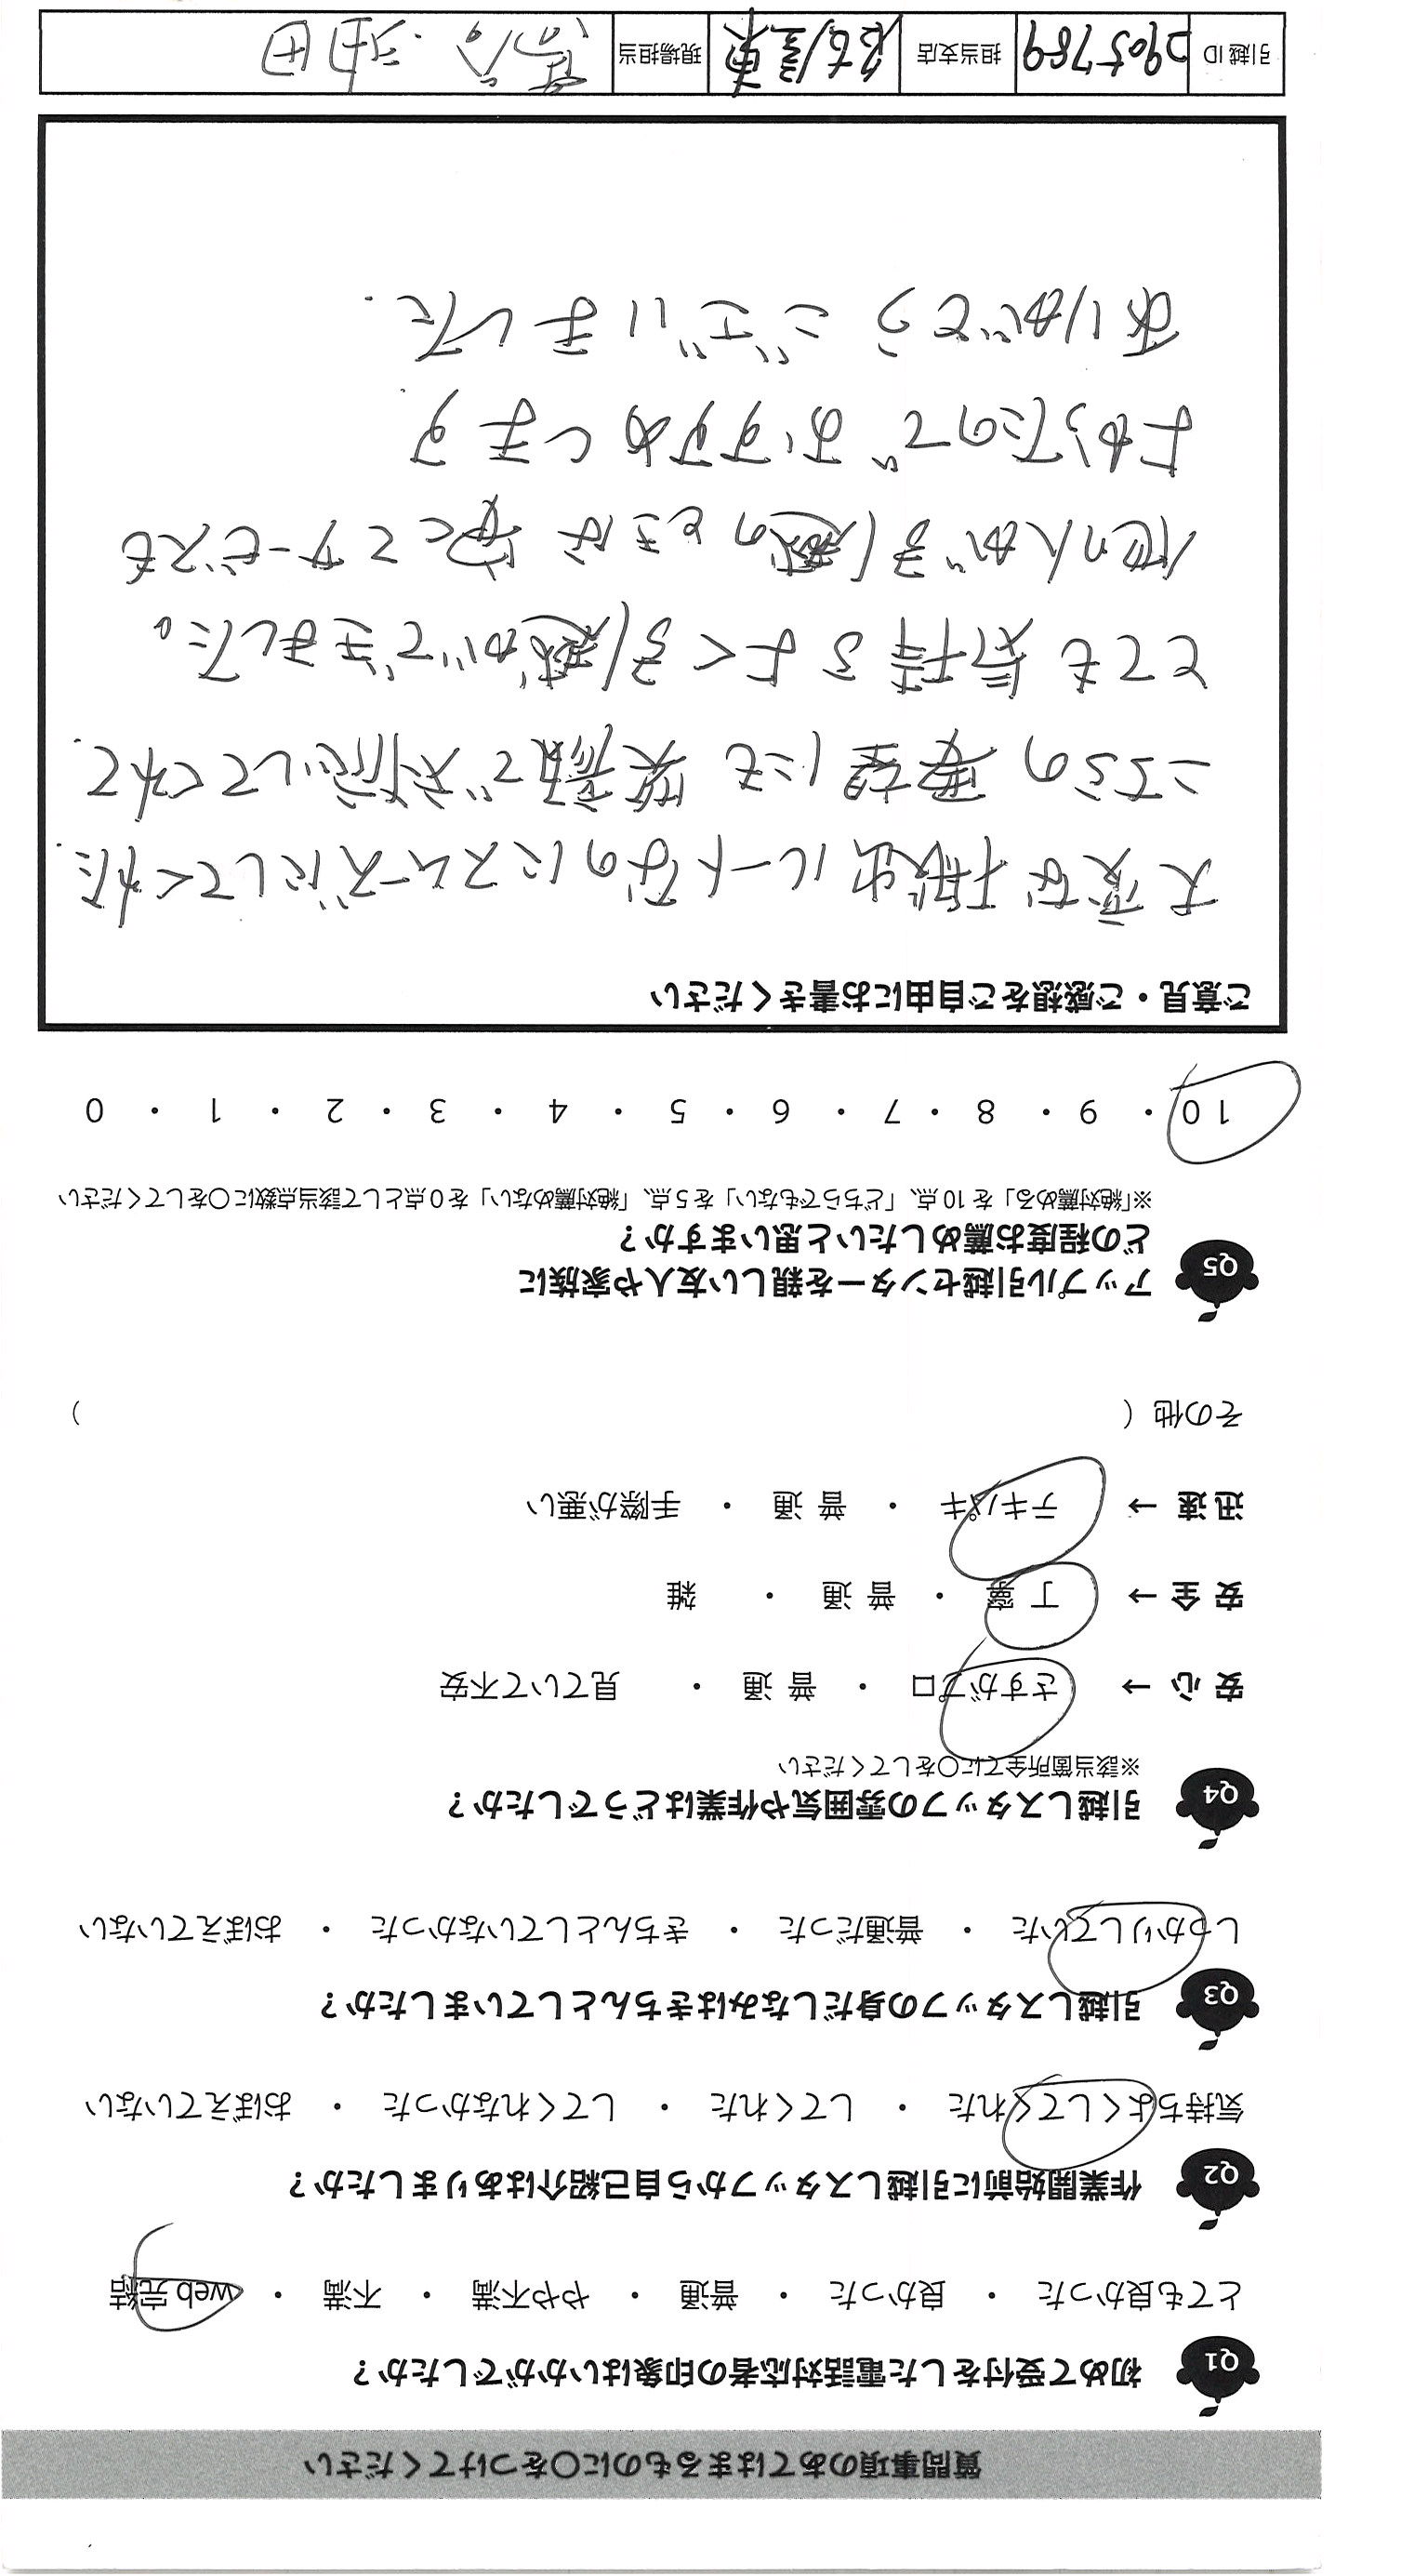 質問事項のあてはまるものに○をつけてください
Q1 初めて受付をした電話対応者の印象はいかがでしたか？
とても良かった ・ 良かった ・ 普通 ・ やや不満 ・ 不満 ・ web完結
Q2 作業開始前に引越しスタッフから自己紹介はありましたか？
気持ちよくしてくれた ・ してくれた ・ してくれなかった ・ おぼえていない
Q3 引越しスタッフの身だしなみはきちんとしていましたか？
しっかりしていた ・ 普通だった ・ きちんとしていなかった ・ おぼえていない
Q4 引越しスタッフの雰囲気や作業はどうでしたか？
※該当箇所全てに○をしてください
安心 → さすがプロ ・ 普通 ・ 見ていて不安
安全 → 丁寧 ・ 普通 ・ 雑
迅速 → テキパキ ・ 普通 ・ 手際が悪い
その他（ ）
Q5 アップル引越センターを親しい友人や家族に
どの程度お薦めしたいと思いますか？
※「絶対薦める」を10点、「どちらでもない」を5点、「絶対薦めない」を0点として該当点数に○をしてください
10 ・ 9 ・ 8 ・ 7 ・ 6 ・ 5 ・ 4 ・ 3 ・ 2 ・ 1 ・ 0
ご意見・ご感想をご自由にお書きください
大変な搬出ルートなのにスムーズにしてくれた.
こちらの要望にも笑顔で対応してくれて.
とても気持ちよく引越ができました。
他の人が引越のときは安くてサービスも
よかったので おすすめします.
ありがとうございました.
引越ID 2905789 担当支店 名古屋東 現場担当